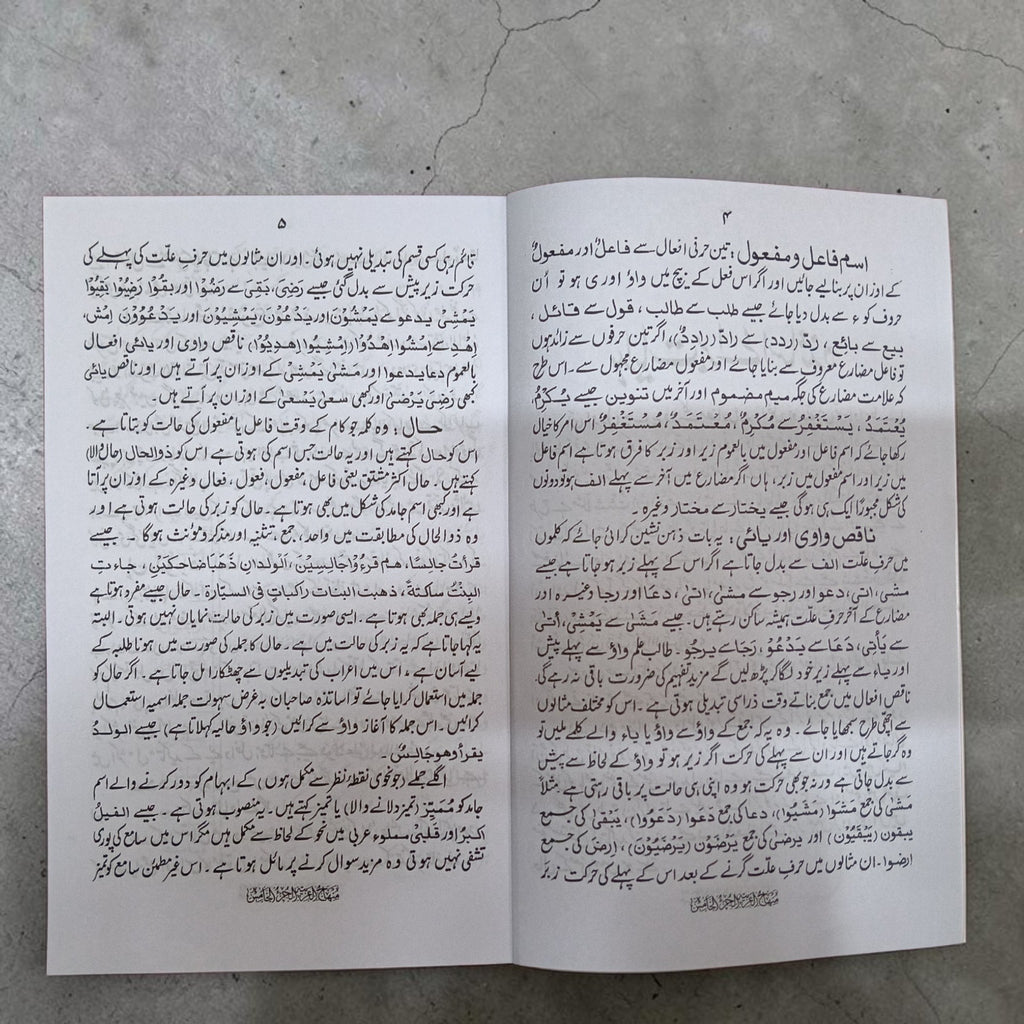 ۴
اسم فاعل و مفعول : تین حرفی افعال سے فاعلٌ اور مفعولٌ
کے اوزان پر بنالیے جائیں اور اگر اس فعل کے بیچ میں واؤ اور ی ہو تو اُن
حروف کو ء سے بدل دیا جائے جیسے طلب سے طالب ، قول سے قائل ،
بیع سے بائع ، ردّ (ردد) سے رادّ (رادِدٌ)، اگر تین حرفوں سے زائد ہوں
تو فاعل مضارع معروف سے بنایا جائے اور مفعول مضارع مجہول سے۔ اس طرح
کہ علامت مضارع کی جگہ میم مضموم اور آخر میں تنوین جیسے یُکرِمُ،
یُعْتَمَدُ، یَسْتَغْفِرُ سے مُکْرِمٌ، مُعْتَمَدٌ، مُسْتَغْفِرٌ اس امر کا خیال
رکھا جائے کہ اسم فاعل اور مفعول میں بالعموم زیر اور زبر کا فرق ہوتا ہے اسم فاعل
میں زیر اور اسم مفعول میں زبر، ہاں اگر مضارع میں آخر سے پہلے الف ہو تو دونوں
کی شکل مجبوراً ایک ہی ہوگی جیسے یختار سے مختار وغیرہ ۔
ناقص واوی اور یائی : یہ بات ذہن نشین کرائی جائے کہ کلموں
میں حرفِ علّت الف سے بدل جاتا ہے اگر اس کے پہلے زبر ہو جاتا ہے جیسے
مشی، اتی، دعو اور رجو سے مشیٰ، اتیٰ، دعا اور رجا وغیرہ اور
مضارع کے آخر حرف علّت ہمیشہ ساکن رہتے ہیں۔ جیسے مَشَیٰ سے یَمْشِیْ، أتیٰ
سے یَأتِی، دَعَا سے یَدْعُوْ، رَجَا سے یرجُو۔ طالب علم واؤ سے پہلے پیش
اور یاء سے پہلے زیر خود لگا کر پڑھ لیں گے مزید تفہیم کی ضرورت باقی نہ رہے گی۔
ناقص افعال میں جمع بناتے وقت ذرا سی تبدیلی ہوتی ہے۔ اس کو مختلف مثالوں
سے اچھی طرح سمجھایا جائے ۔ وہ یہ کہ جمع کے واؤ سے واؤ یا یاء والے کلمے ملیں تو
وہ گر جاتے ہیں اور ان سے پہلے کی حرکت اگر زیر ہو تو واؤ کے لحاظ سے پیش
سے بدل جاتی ہے ورنہ جو بھی حرکت ہو وہ اپنی ہی حالت پر باقی رہتی ہے۔ مثلاً
مَشَیٰ کی جمع مَشَوْا (مَشَیُوْا)، دعا کی جمع دَعَوا (دَعَوُوْا)، یَبْقیٰ کی جمع
یبقون (یَبْقَیُوْنَ) اور یرضیٰ کی جمع یَرْضَوْنَ (یَرْضَیُوْنَ)، اِرضَ کی جمع
ارضوا۔ ان مثالوں میں حرفِ علّت گرنے کے بعد اس کے پہلے کی حرکت زبر
منہاج العربیۃ الجزء الخامس
۵
قائم رہی کسی قسم کی تبدیلی نہیں ہوئی۔ اور ان مثالوں میں حرفِ علّت کی پہلے کی
حرکت زیر پیش سے بدل گئی جیسے رَضِیَ، بَقِیَ سے رَضُوْا اور بَقُوْا رَضِیُوْا بَقِیُوْا
یَمْشِیْ یدعو سے یَمْشُوْنَ اور یَدْعُوْنَ، یَمْشِیُوْنَ اور یَدْعُوُوْنَ اِمْشِ،
اِهْدِ سے اِمْشُوا اِهْدُوْا (اِمْشِیُوْا اِهدِیُوْا) ناقص واوی اور یائی افعال
بالعموم دعا یدعوا اور مَشیٰ یَمْشِیْ کے اوزان پر آتے ہیں اور ناقص یائی
کبھی رَضِیَ یَرْضیٰ اور کبھی سعیٰ یَسْعیٰ کے اوزان پر آتے ہیں۔
حال : وہ کلمہ جو کام کے وقت فاعل یا مفعول کی حالت کو بتاتا ہے۔
اس کو حال کہتے ہیں اور یہ حالت جس اسم کی ہوتی ہے اس کو ذو الحال (حال والا)
کہتے ہیں ۔ حال اکثر مشتق یعنی فاعل، مفعول، فعول، فعال وغیرہ کے اوزان پر آتا
ہے اور کبھی اسم جامد کی شکل میں بھی ہوتا ہے۔ حال کو زبر کی حالت ہوتی ہے اور
وہ ذو الحال کی مطابقت میں واحد، جمع، تثنیہ اور مذکر و مؤنث ہوگا ۔ جیسے
قرأتُ جالسًا، هم قرءُوْا جَالِسِیْنَ، اَلْوَلَدانِ ذَهَبَا ضاحکَیْنِ، جاءتِ
البنتُ ساکتةً، ذهبت البنات راکباتٍ فی السیّارة ۔ حال جیسے مفرد ہوتا ہے
ویسے ہی جملہ بھی ہوتا ہے ۔ ایسی صورت میں زبر کی حالت نمایاں نہیں ہوتی ۔ البتہ
یہ کہا جاتا ہے کہ یہ زبر کی حالت میں ہے۔ حال کا جملہ کی صورت میں ہونا طلبہ کے
لیے آسان ہے ، اس میں اعراب کی تبدیلیوں سے چھٹکارا مل جاتا ہے۔ اگر حال کو
جملہ میں استعمال کرایا جائے تو اساتذہ صاحبان بہ غرض سہولت جملہ اسمیہ استعمال
کرائیں ۔ اس جملہ کا آغاز واؤ سے کرائیں (جو واؤ حالیہ کہلاتا ہے) جیسے الولدُ
یقرأ وهو جالسٌ ۔
اگلے جملے (جو نحوی نقطۂ نظر سے مکمل ہوں) کے ابہام کو دور کرنے والے اسم
جامد کو مُمَیِّز (تمیز دلانے والا) یا تمیز کہتے ہیں۔ یہ منصوب ہوتی ہے۔ جیسے الفیلُ
اکبرُ اور قلبی مملوء عربی میں نحو کے لحاظ سے مکمل ہیں مگر اس میں سامع کی پوری
تشفی نہیں ہوتی وہ مزید سوال کرنے پر مائل ہوتا ہے۔ اس غیر مطمئن سامع کو تمیز
منہاج العربیۃ الجزء الخامس